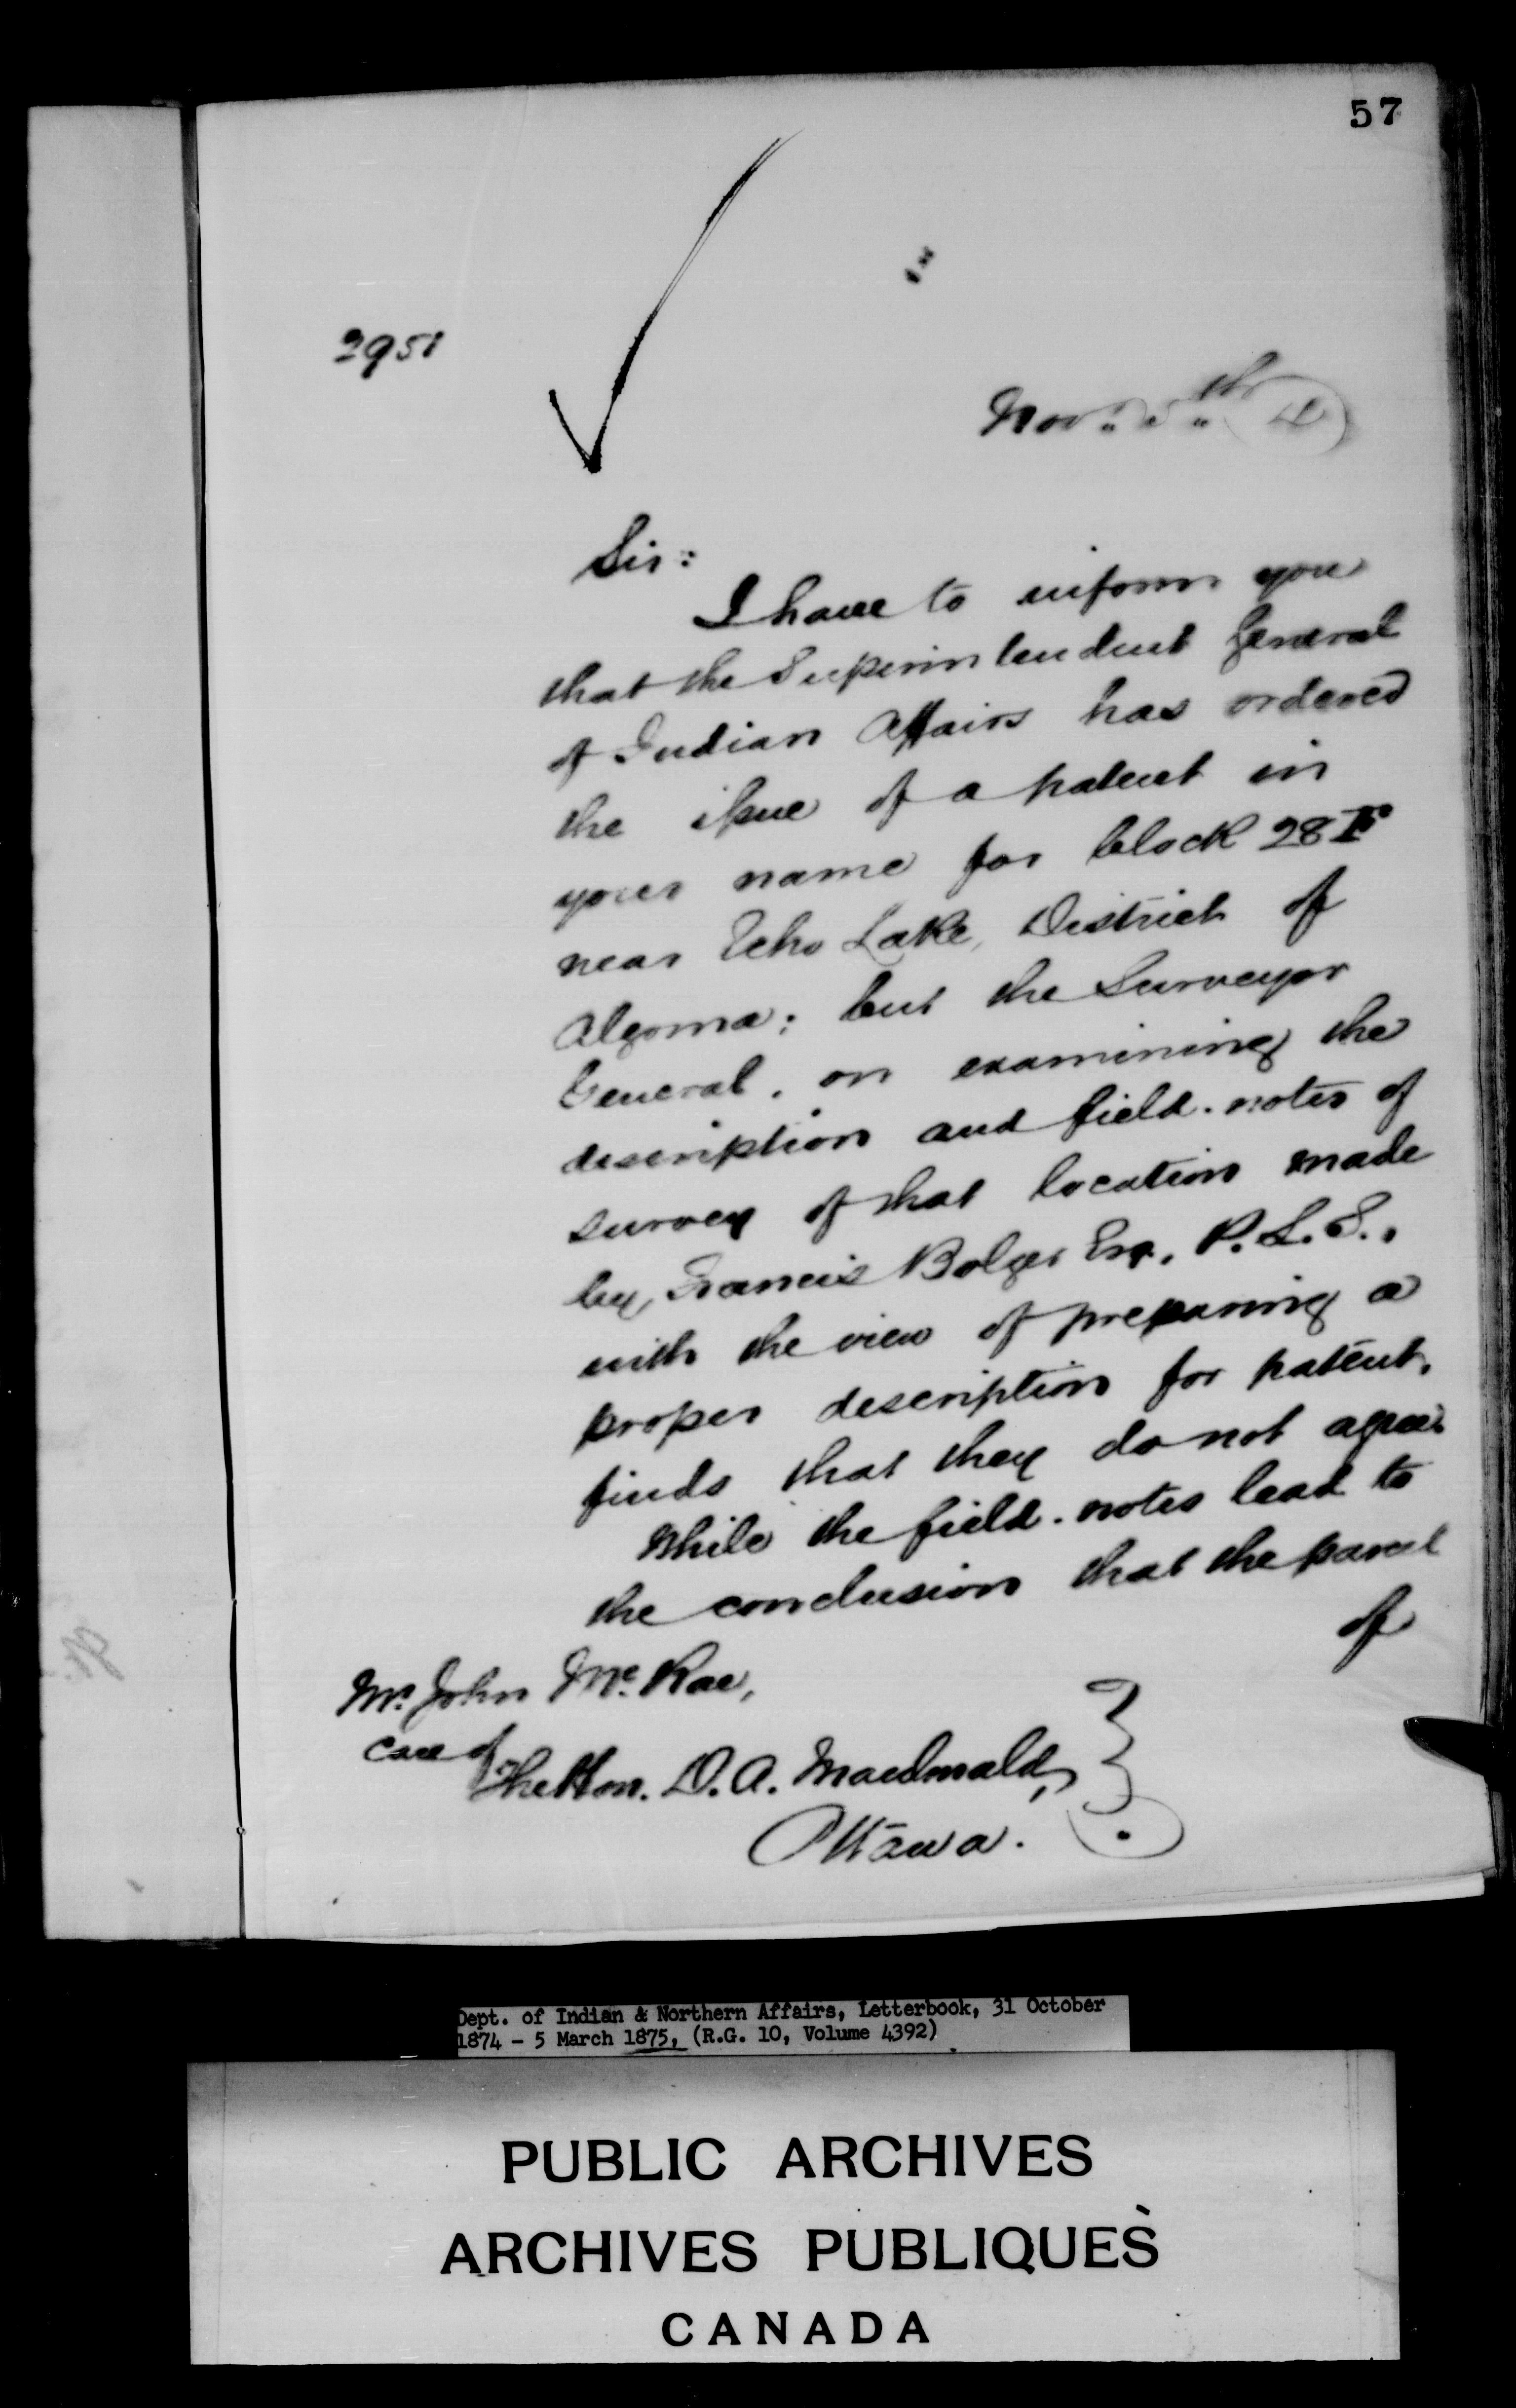 57
2951
Nov. 5th
Sir:
I have to inform you
that the Superintendent General
of Indian Affairs has ordered
the issue of a patent in
your name for block 28
near Echo Lake, District of
Algoma; but the Surveyor
General, on examining the
description and field-notes of
survey of that location made
by Francis Bolger Esq., P.L.S.,
with the view of preparing a
proper description for patent,
finds that they do not agree.
While the field-notes lead to
the conclusion that the parcel
of
Mr. John McRae,
care of
The Hon. D. A. Macdonald,
Ottawa.
Dept. of Indian & Northern Affairs, Letterbook, 31 October
1874 - 5 March 1875, (R.G. 10, Volume 4392)
PUBLIC ARCHIVES
ARCHIVES PUBLIQUES
CANADA